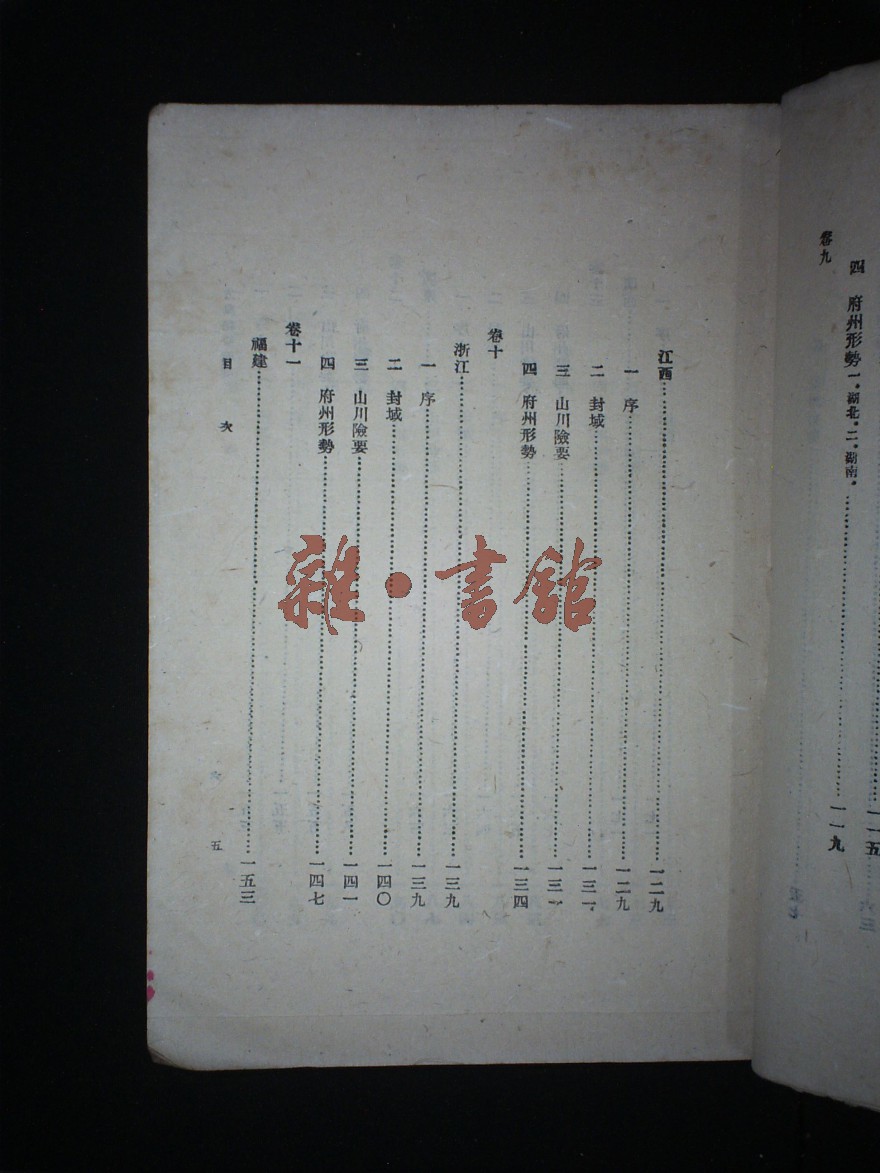 四 府州形勢 一.湖北.二.湖南.……一一九
卷九
江西……一二九
一 序……一二九
二 封域……一三一
三 山川險要……一三一
四 府州形勢……一三四
卷十
浙江……一三九
一 序……一三九
二 封域……一四〇
三 山川險要……一四一
四 府州形勢……一四七
卷十一
福建……一五三
目次
五
雜·書館